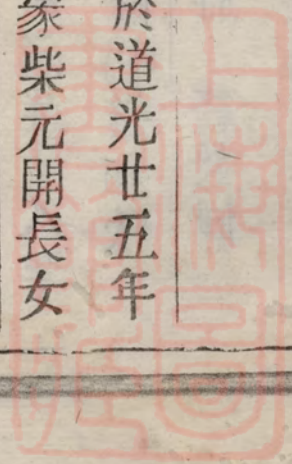 於道光廿五年
柴元開長女